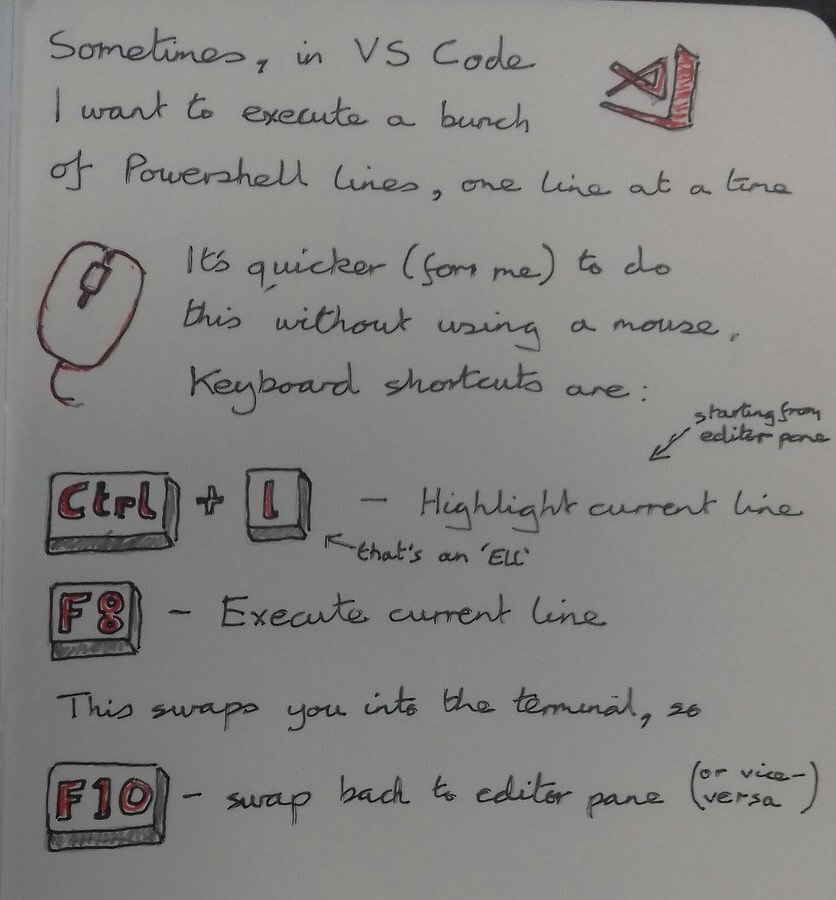 Sometimes, in VS Code
I want to execute a bunch
of Powershell lines, one line at a time
It's quicker (for me) to do
this without using a mouse.
Keyboard shortcuts are:
starting from
editor pane
Ctrl + l – Highlight current line
that's an 'Ell'
F8 – Execute current line
This swaps you into the terminal, so
F10 – swap back to editor pane (or vice-
versa)